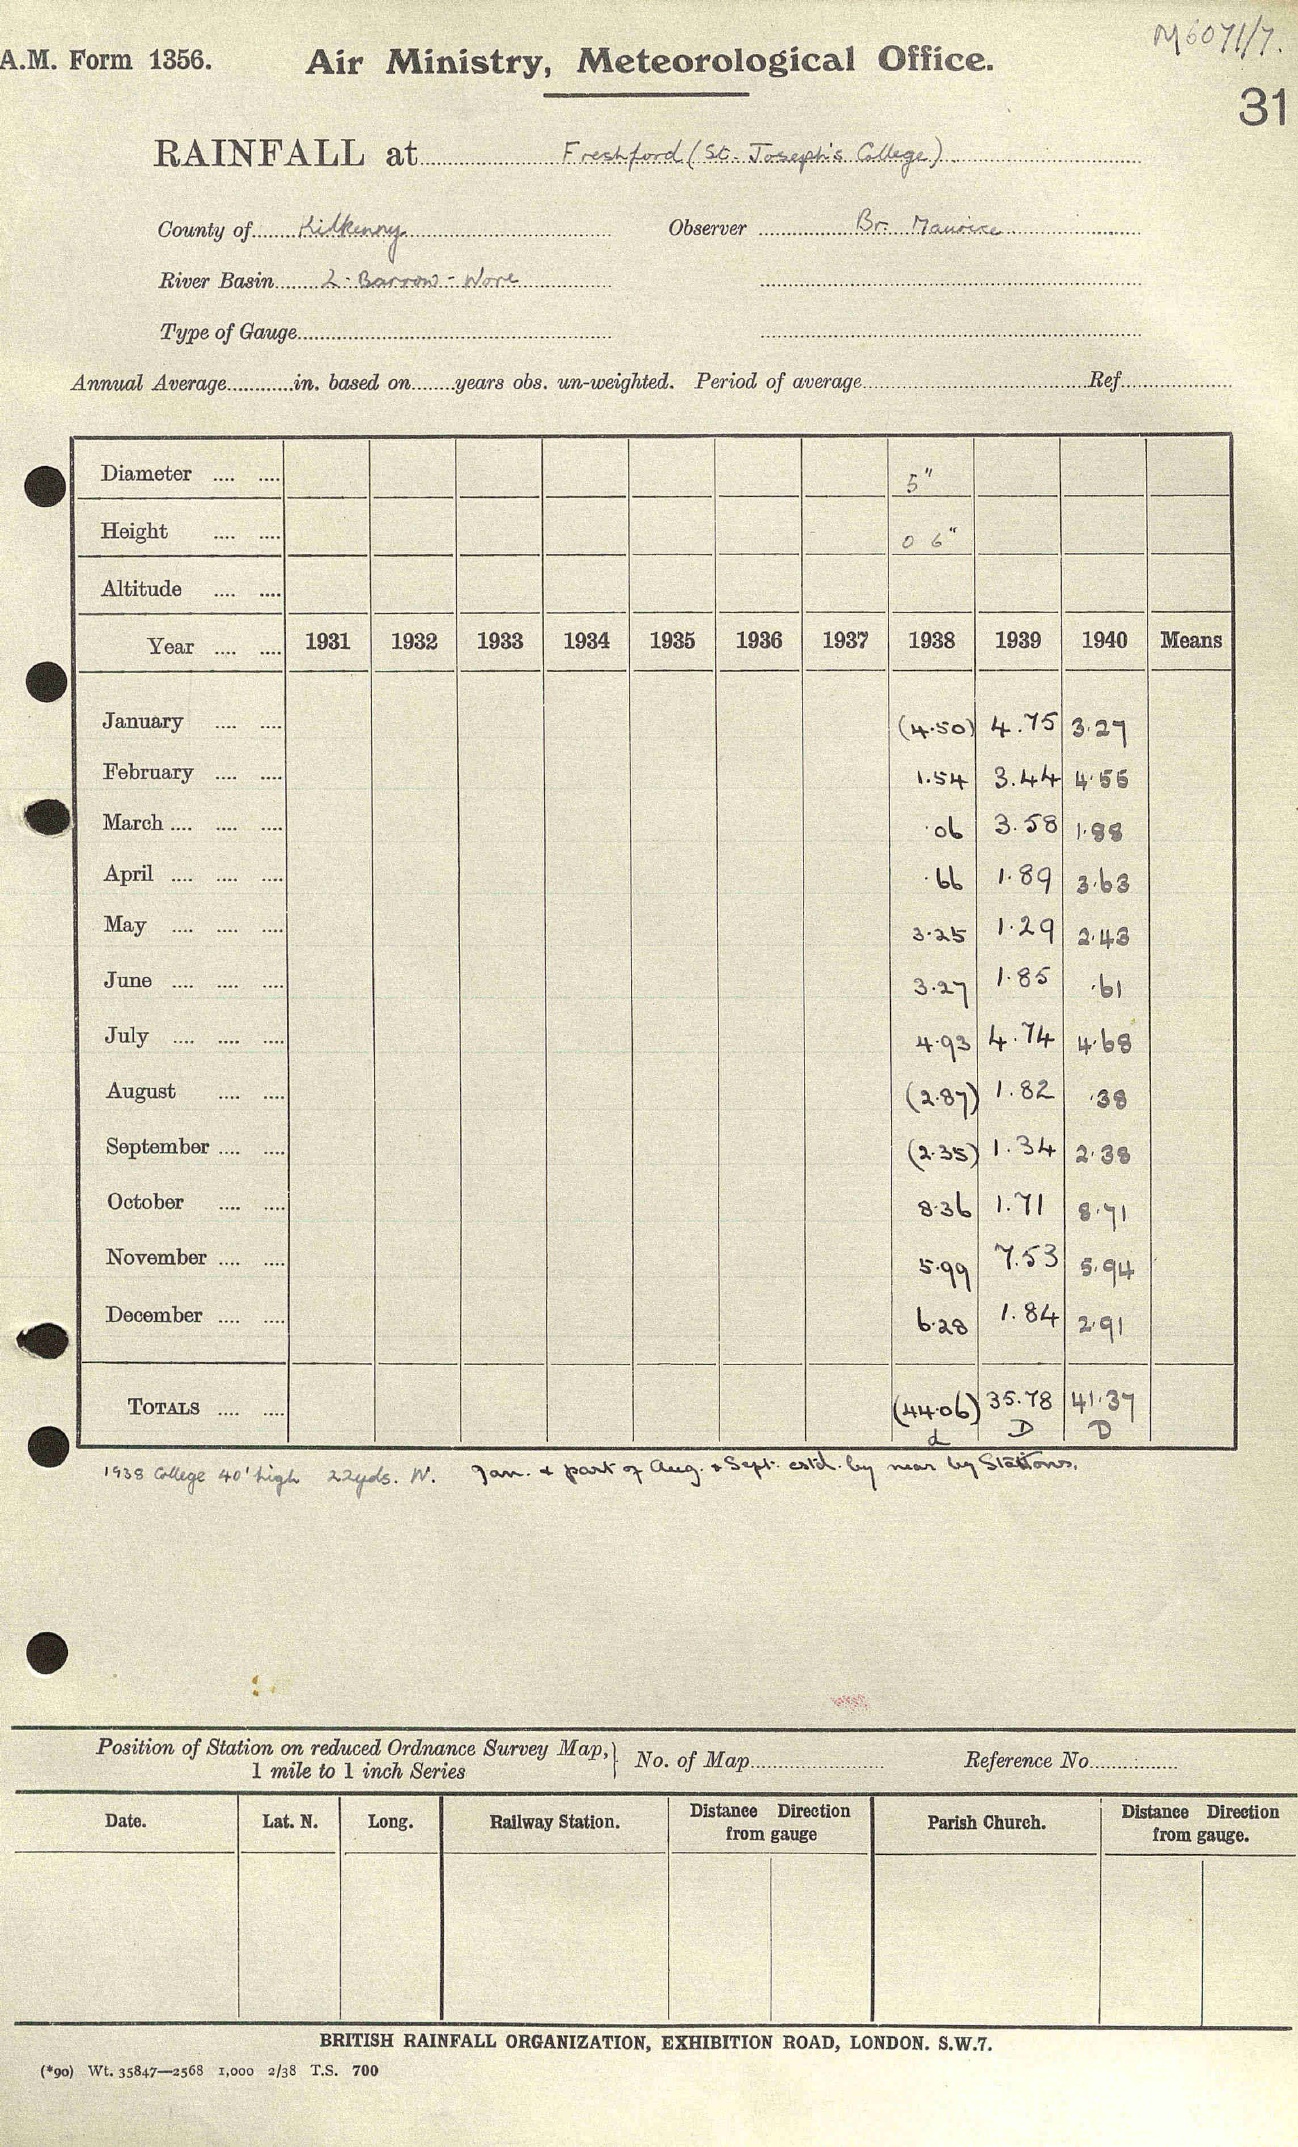 M6071/7.
A.M. Form 1356. Air Ministry, Meteorological Office.
31
RAINFALL at Freshford (St. Joseph's College)
County of Kilkenny Observer Br. Maurice
River Basin 2. Barrow - Nore
Type of Gauge
Annual Average in. based on years obs. un-weighted. Period of average Ref
Diameter 5"
Height 0 6"
Altitude
Year 1931 1932 1933 1934 1935 1936 1937 1938 1939 1940 Means
January (4.50) 4.75 3.27
February 1.54 3.44 4.55
March .06 3.58 1.88
April .66 1.89 3.63
May 3.25 1.29 2.43
June 3.27 1.85 .61
July 4.93 4.74 4.68
August (2.87) 1.82 .38
September (2.35) 1.34 2.38
October 8.36 1.71 8.71
November 5.99 7.53 5.94
December 6.28 1.84 2.91
TOTALS (44.06) 35.78 41.37
d D D
1938 College 40' high 22yds. W. Jan. + part of Aug. & Sept. estd. by near by Stations.
Position of Station on reduced Ordnance Survey Map, 1 mile to 1 inch Series No. of Map Reference No
Date. Lat. N. Long. Railway Station. Distance Direction from gauge Parish Church. Distance Direction from gauge.
BRITISH RAINFALL ORGANIZATION, EXHIBITION ROAD, LONDON. S.W.7.
(*90) Wt. 35847—2568 1,000 2/38 T.S. 700